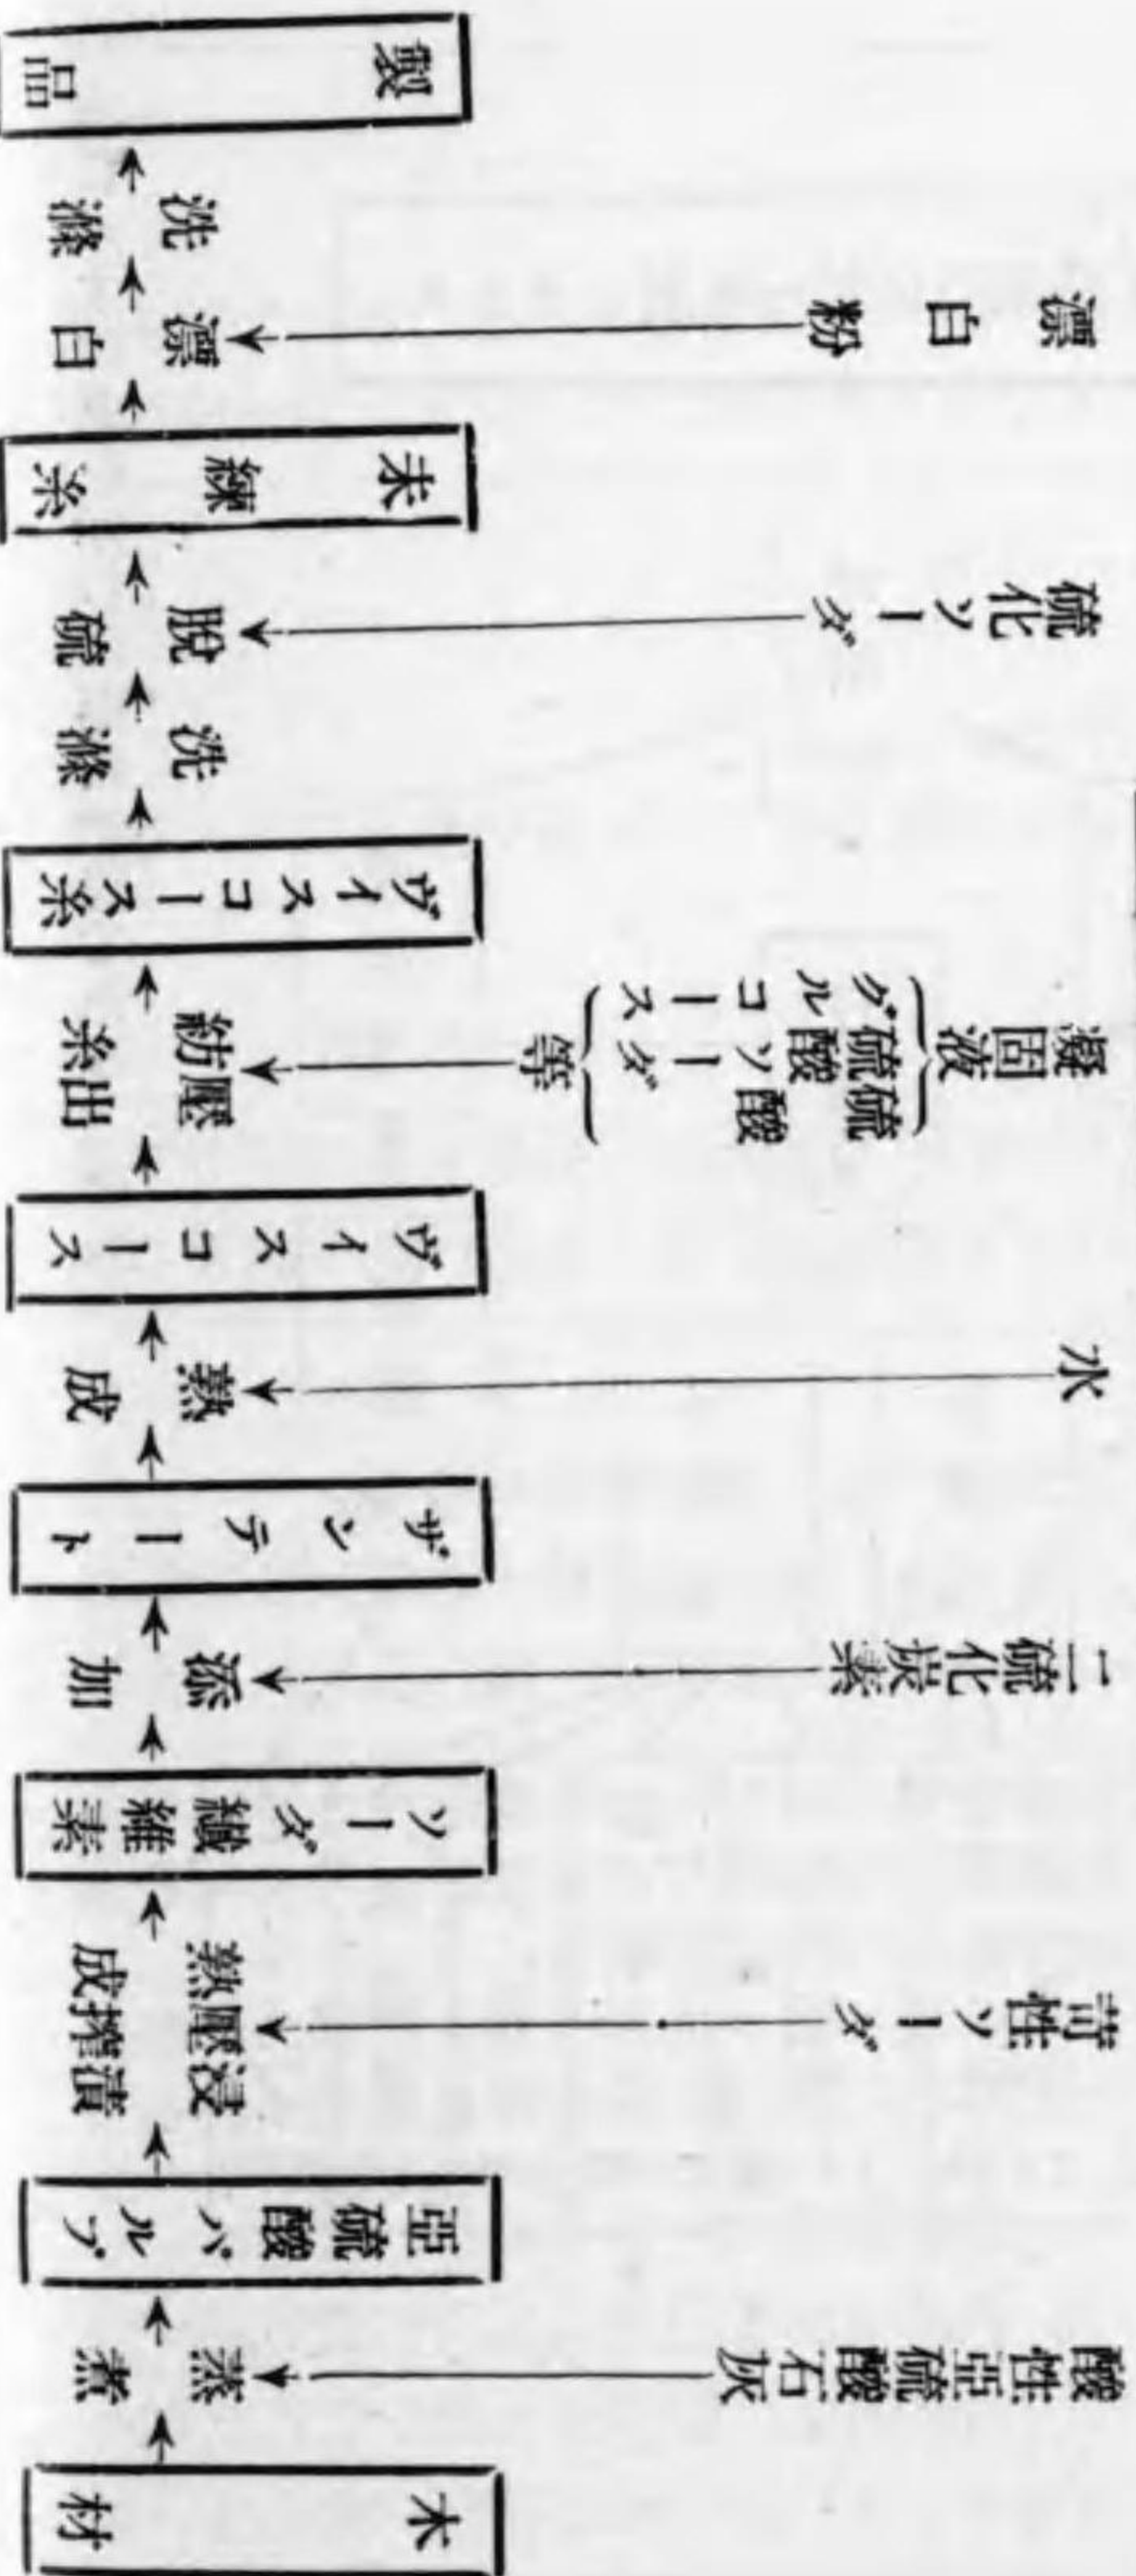 木材
酸性亞硫酸石灰
蒸煮
亞硫酸パルプ
苛性ソーダ
浸漬
壓搾
熟成
ソーダ纎維素
二硫化炭素
添加
ザンテート
水
熟成
ヴイスコース
凝固液
硫酸
硫酸ソーダ
グルコース
等
壓出
紡糸
ヴイスコース糸
洗滌
硫化ソーダ
脫硫
未練糸
漂白粉
漂白
洗滌
製品